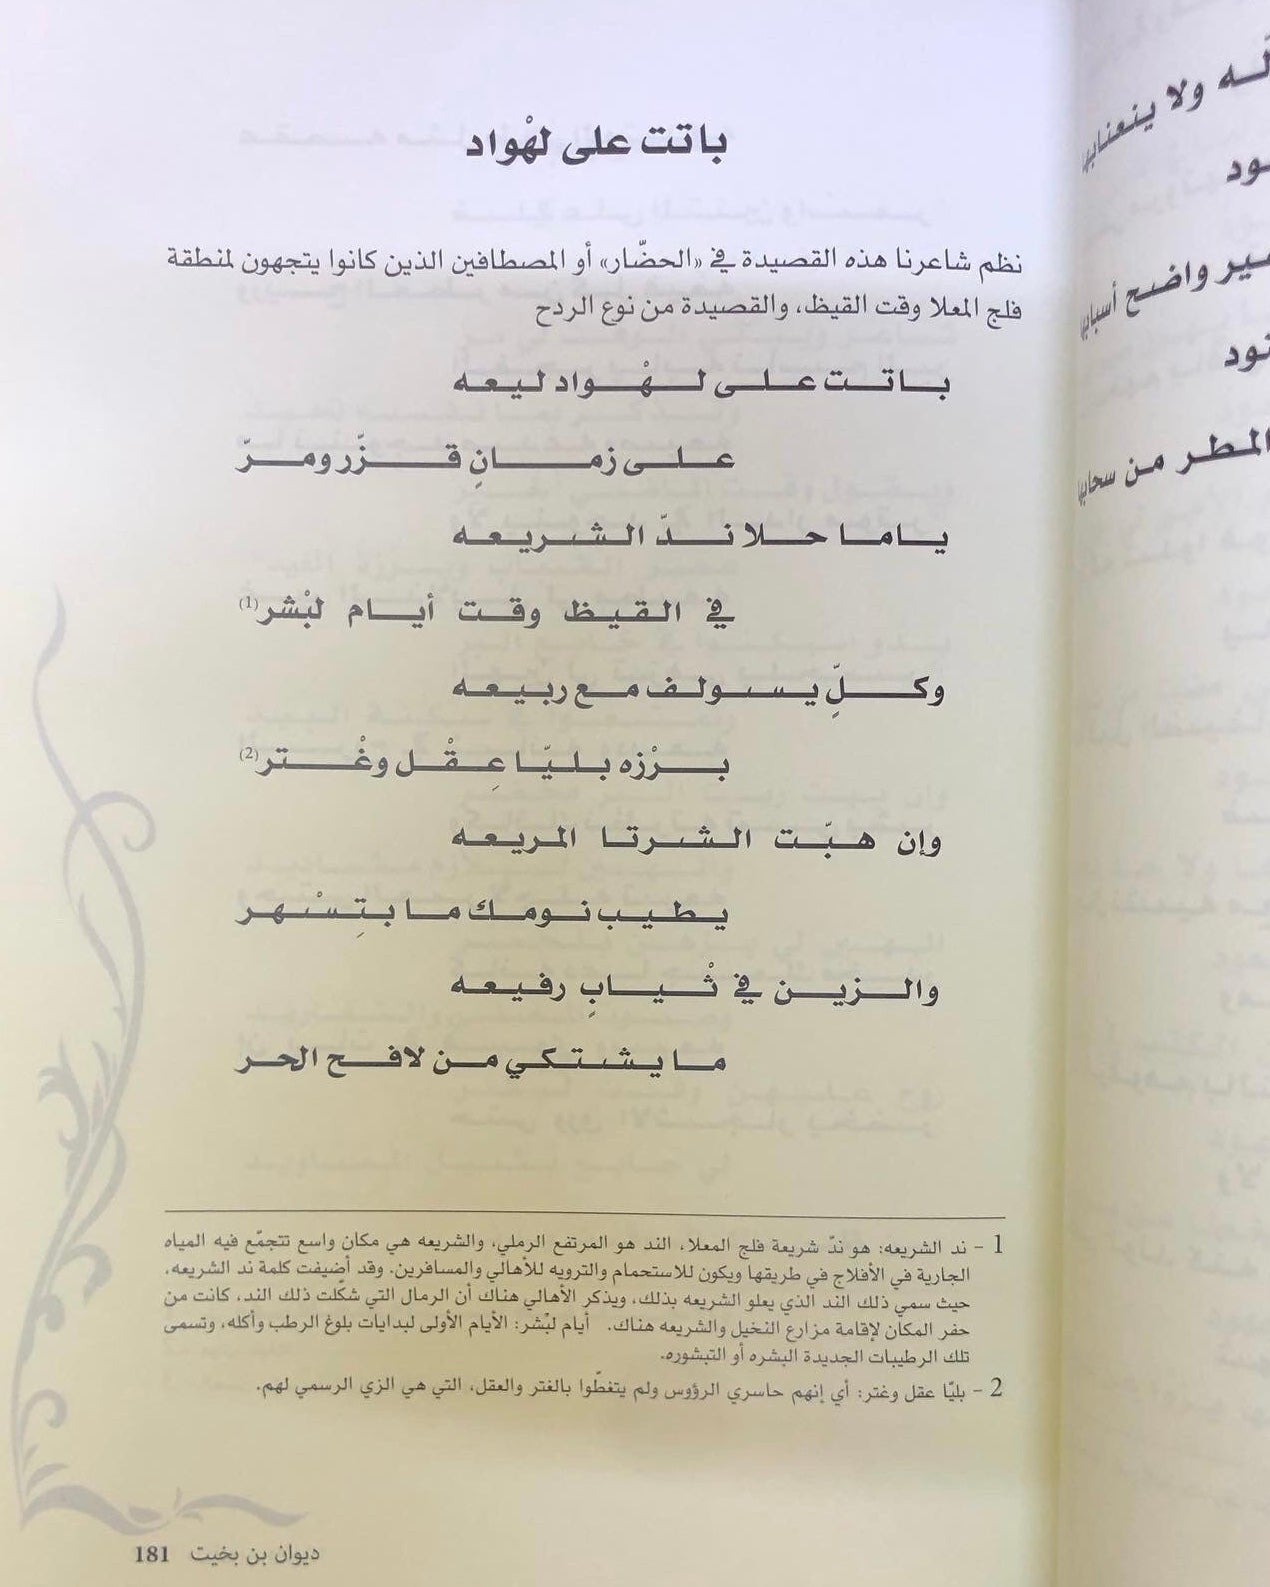 باتت على لهْواد
نظم شاعرنا هذه القصيدة في «الحضّار» أو المصطافين الذين كانوا يتجهون لمنطقة
فلج المعلا وقت القيظ، والقصيدة من نوع الردح
باتت على لهْواد ليعه
على زمانٍ قزّر ومرّ
ياما حلا ندّ الشريعه
في القيظ وقت أيام لبْشر(1)
وكلٍّ يسولف مع ربيعه
برْزه بليّا عِقْل وغْتر(2)
وإن هبّت الشرتا المريعه
يطيب نومك ما بتِسْهر
والزين في ثْيابٍ رفيعه
ما يشتكي من لافح الحر
1 - ند الشريعه: هو ندّ شريعة فلج المعلا، الند هو المرتفع الرملي، والشريعه هي مكان واسع تتجمّع فيه المياه
الجارية في الأفلاج في طريقها ويكون للاستحمام والترويه للأهالي والمسافرين. وقد أضيفت كلمة ند الشريعه،
حيث سمي ذلك الند الذي يعلو الشريعه بذلك، ويذكر الأهالي هناك أن الرمال التي شكّلت ذلك الند، كانت من
حفر المكان لإقامة مزارع النخيل والشريعه هناك. أيام لبْشر: الأيام الأولى لبدايات بلوغ الرطب وأكله، وتسمى
تلك الرطيبات الجديدة البشره أو التبشوره.
2 - بليّا عقل وغتر: أي إنهم حاسري الرؤوس ولم يتغطّوا بالغتر والعقل، التي هي الزي الرسمي لهم.
ديوان بن بخيت 181
له ولا ينعنابها
ود
ير واضح أسبابها
نود
المطر من سحابها